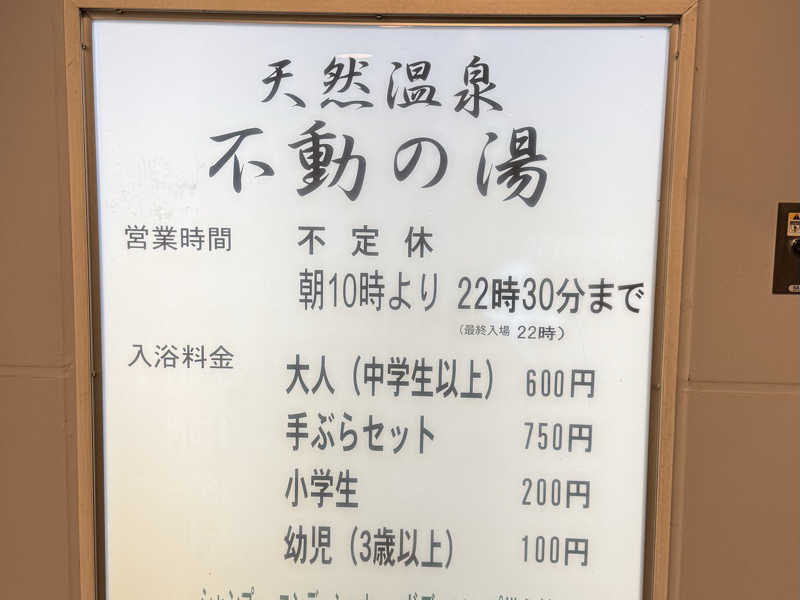 天然温泉
不動の湯
営業時間 不定休
朝10時より 22時30分まで
(最終入場 22時)
入浴料金 大人(中学生以上) 600円
手ぶらセット 750円
小学生 200円
幼児(3歳以上) 100円